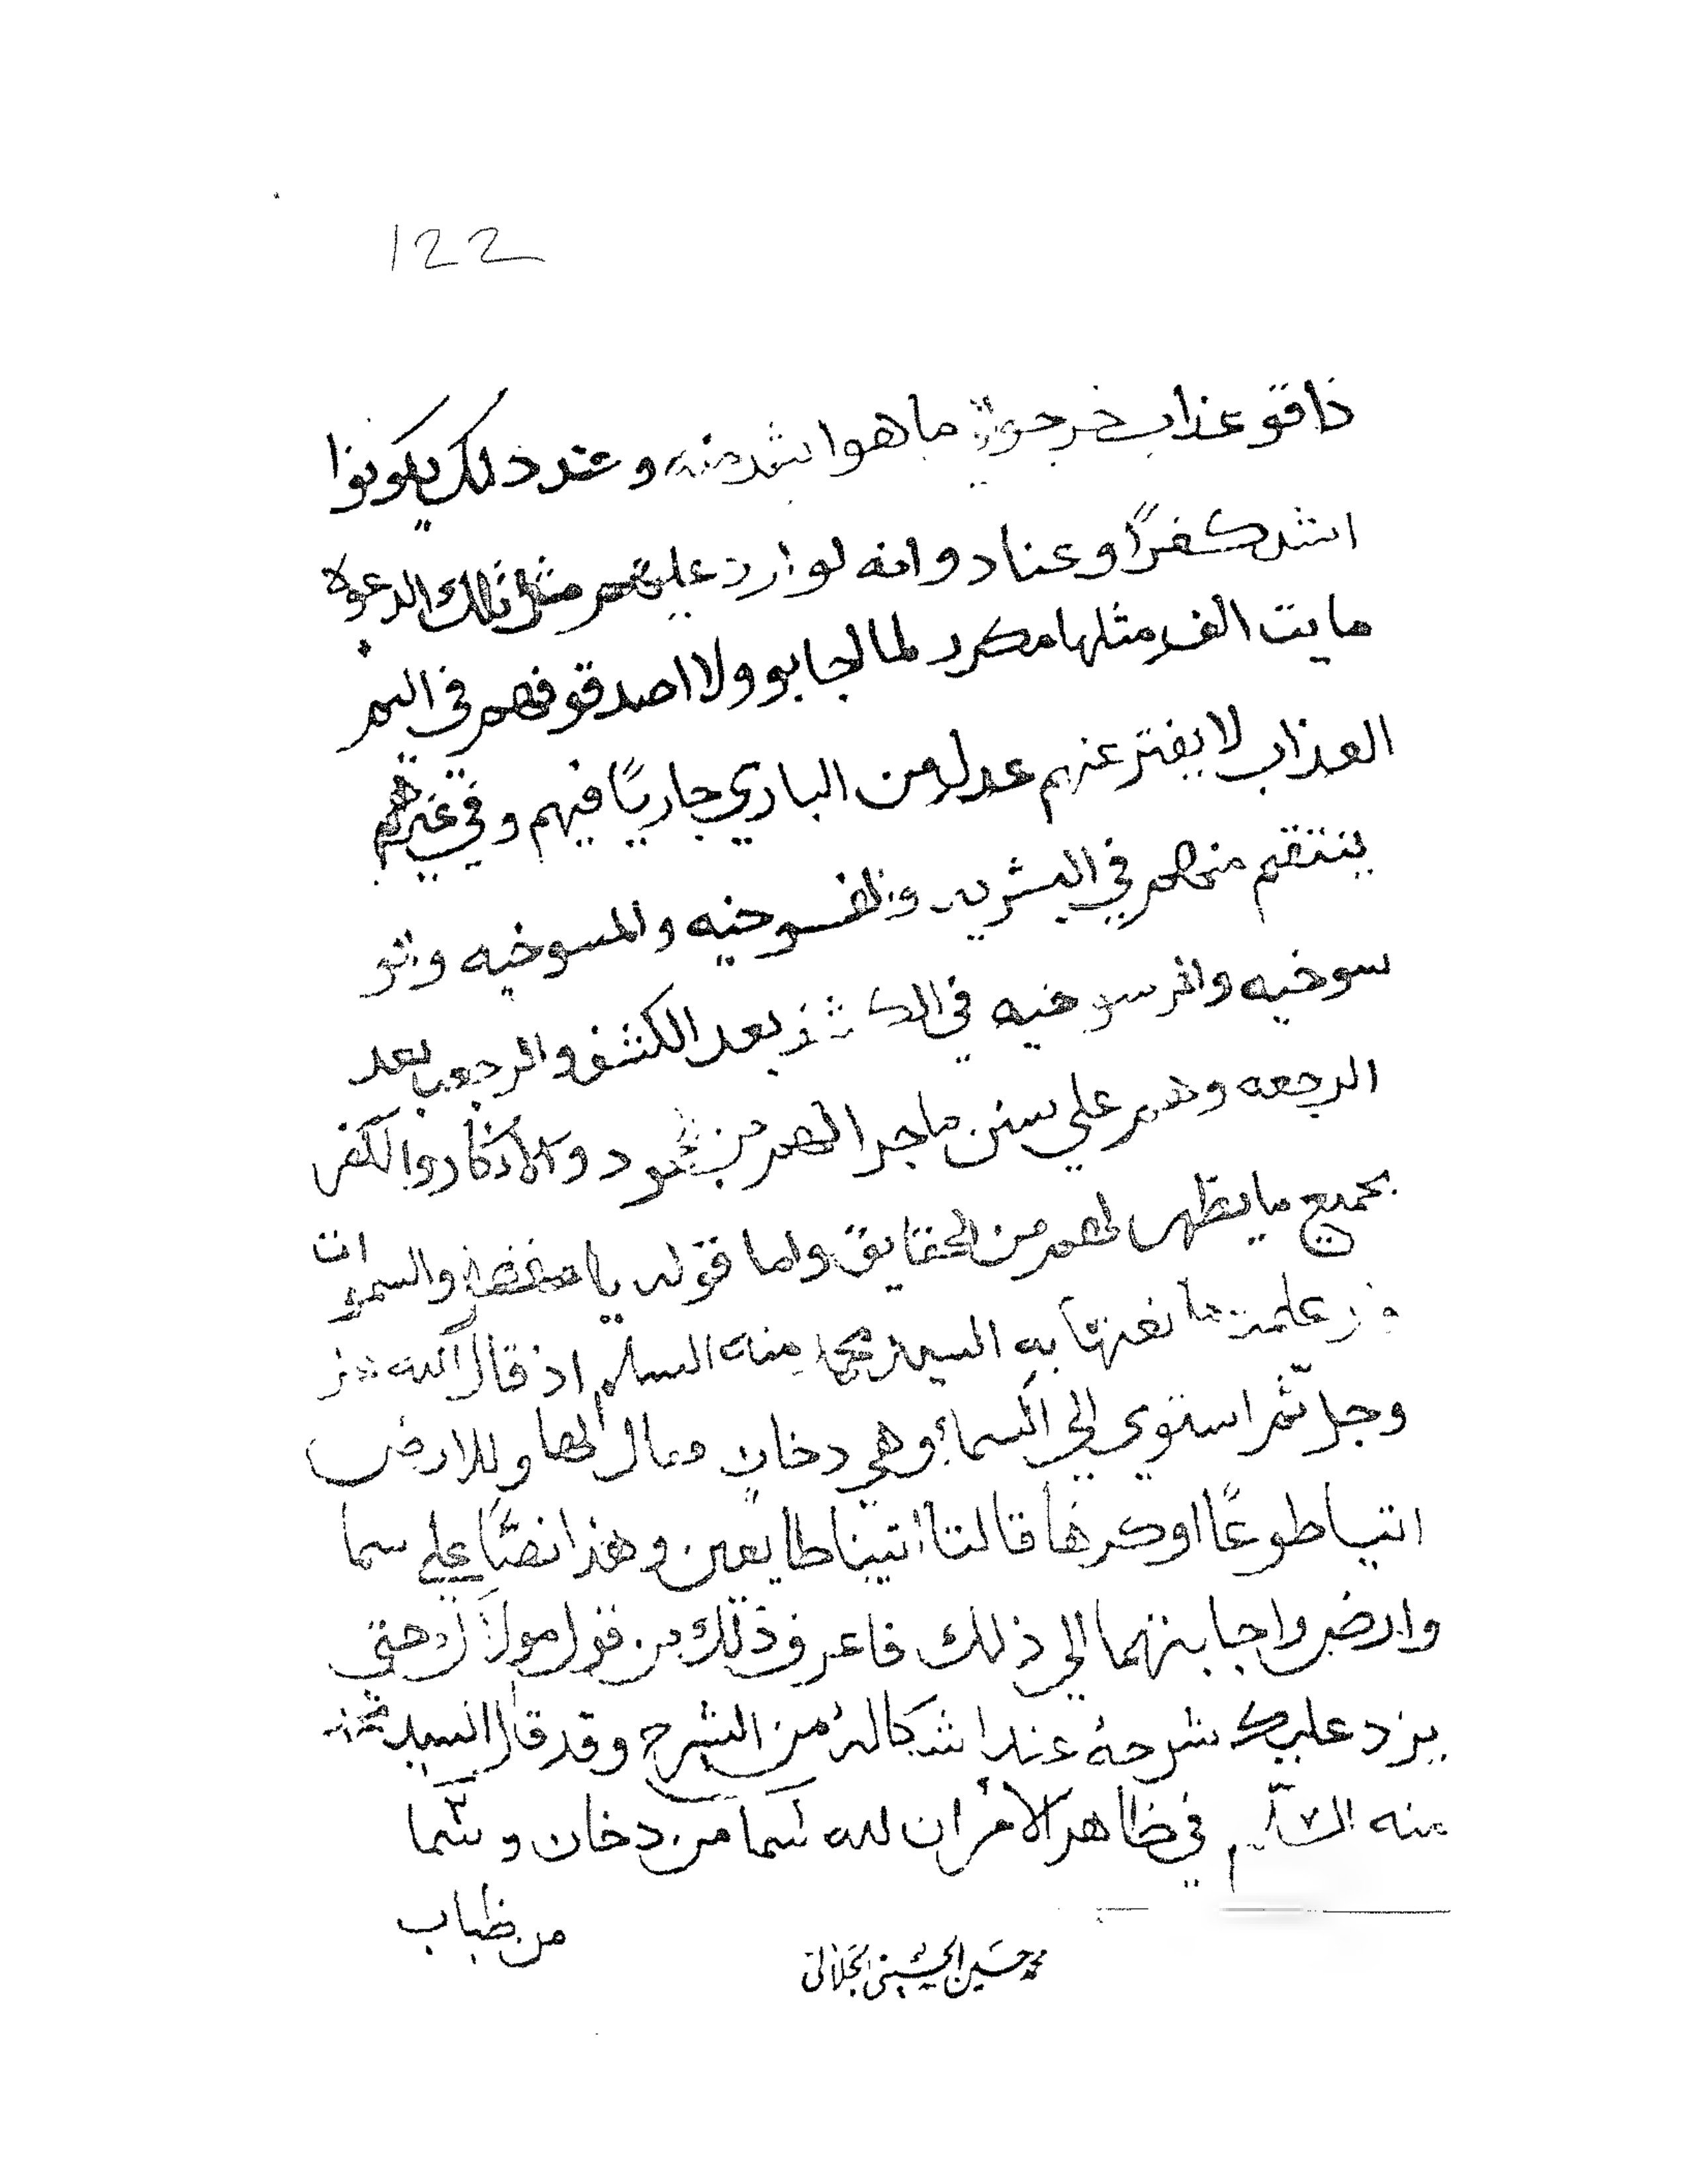 122
ذاقو عذاب خرجو ما هو اشد منه وعند ذلك يكونوا
اشد كفرًا وعناد وانه لو ارد عليهم مثل تلك الدعوه
مايت الف مثلها مكرر لما اجابو ولا اصدقو فهم في اليم
العذاب لا يفتر عنهم عدل من الباري جاريًا فيهم وفي غيرهم
ينتقم منهم في البشريه والفسوخيه والمسوخيه والو
سوخيه والرسوخيه في الكشف بعد الكشف والرجعه بعد
الرجعه وهم علي سنن ما جرا لهم من جحود والانكار والكفر
بجميع ما يظهر لهم من الحقايق واما قوله يا مفضل والسموات
علمت ما نعتها به السيد محمد منه السلم اذ قال الله عز
وجل ثم استوي الي السماء وهي دخان وقال لها وللارض
اتيا طوعًا او كرها قالتا اتينا طايعين وهذا نصًا علي سما
وارض واجابتهما الي ذلك فاعرف ذلك من قول مولاك حتي
يرد عليك شرحهُ عند اشكالهُ من الشرح وقد قال السيد محمد
منه السّلام في ظاهر الامر ان لله سما من دخان وسما
من ظباب
محمد حسين الحسيني الجلالي